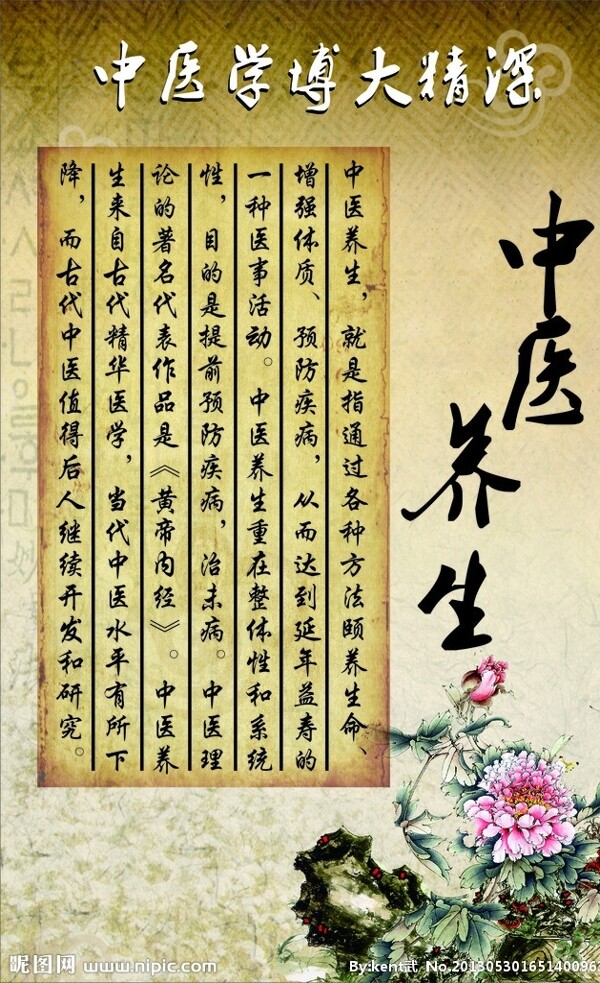 中医学博大精深
中医养生
中医养生，就是指通过各种方法颐养生命、
增强体质、预防疾病，从而达到延年益寿的
一种医事活动。中医养生重在整体性和系统
性，目的是提前预防疾病，治未病。中医理
论的著名代表作品是《黄帝内经》。中医养
生来自古代精华医学，当代中医水平有所下
降，而古代中医值得后人继续开发和研究。
昵图网 www.nipic.com
By:kent武 No.20130530165140096